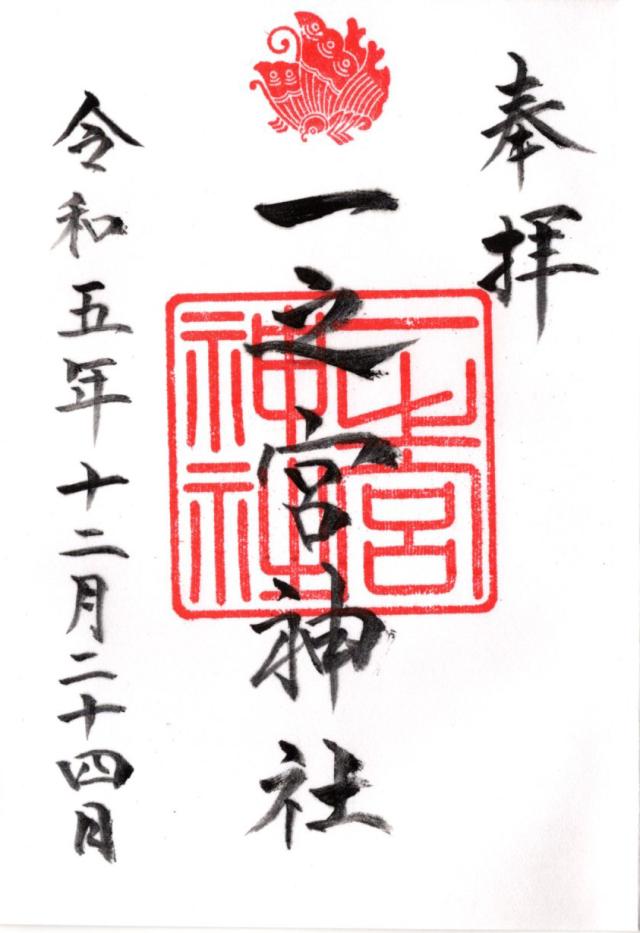 奉拝
一之宮神社
令和五年十二月二十四日
一之宮
神社